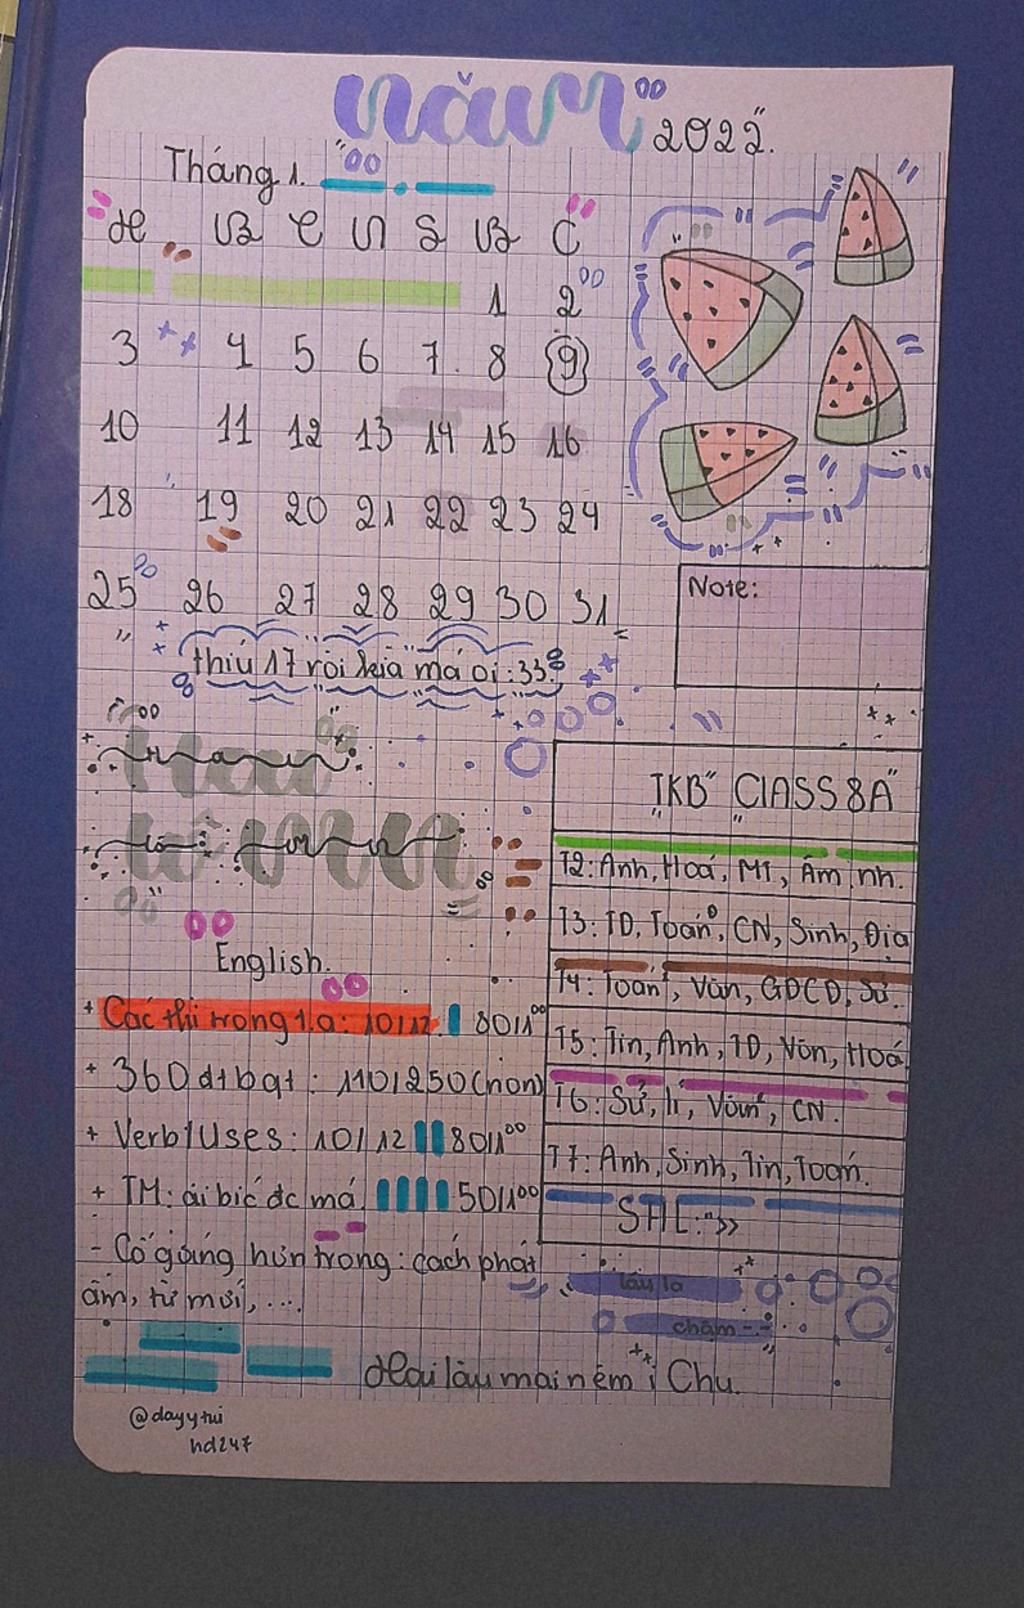 năm
2022.
Tháng 1.
H B C N S B C
1 2
3 4 5 6 7 8 9
10 11 12 13 14 15 16
18 19 20 21 22 23 24
25 26 27 28 29 30 31
thiú 17 rồi kià má oi :33
Note:
TKB" CLASS 8A"
T2: Anh, Hoá, MT, Âm nh.
T3: TD, Toán, CN, Sinh, Địa
T4: Toán, Văn, GDCD, Sử.
T5: Tin, Anh, TD, Văn, Hoá
T6: Sử, lí, Văn, CN.
T7: Anh, Sinh, Tin, Toán.
STTL:">>
English.
+ Các thì trong T.A: 10/12. 80/100
+ 360 đt bqt: 110/250 (hơn)
+ Verb/Uses: 10/12 80/100
+ TM: ai biế đc má 50/100
- Cố gắng hơn trong: cách phát
âm, từ mới, ...
lâu la
chậm--
Hai làu mai nêm i Chu.
@dayytui
hd247